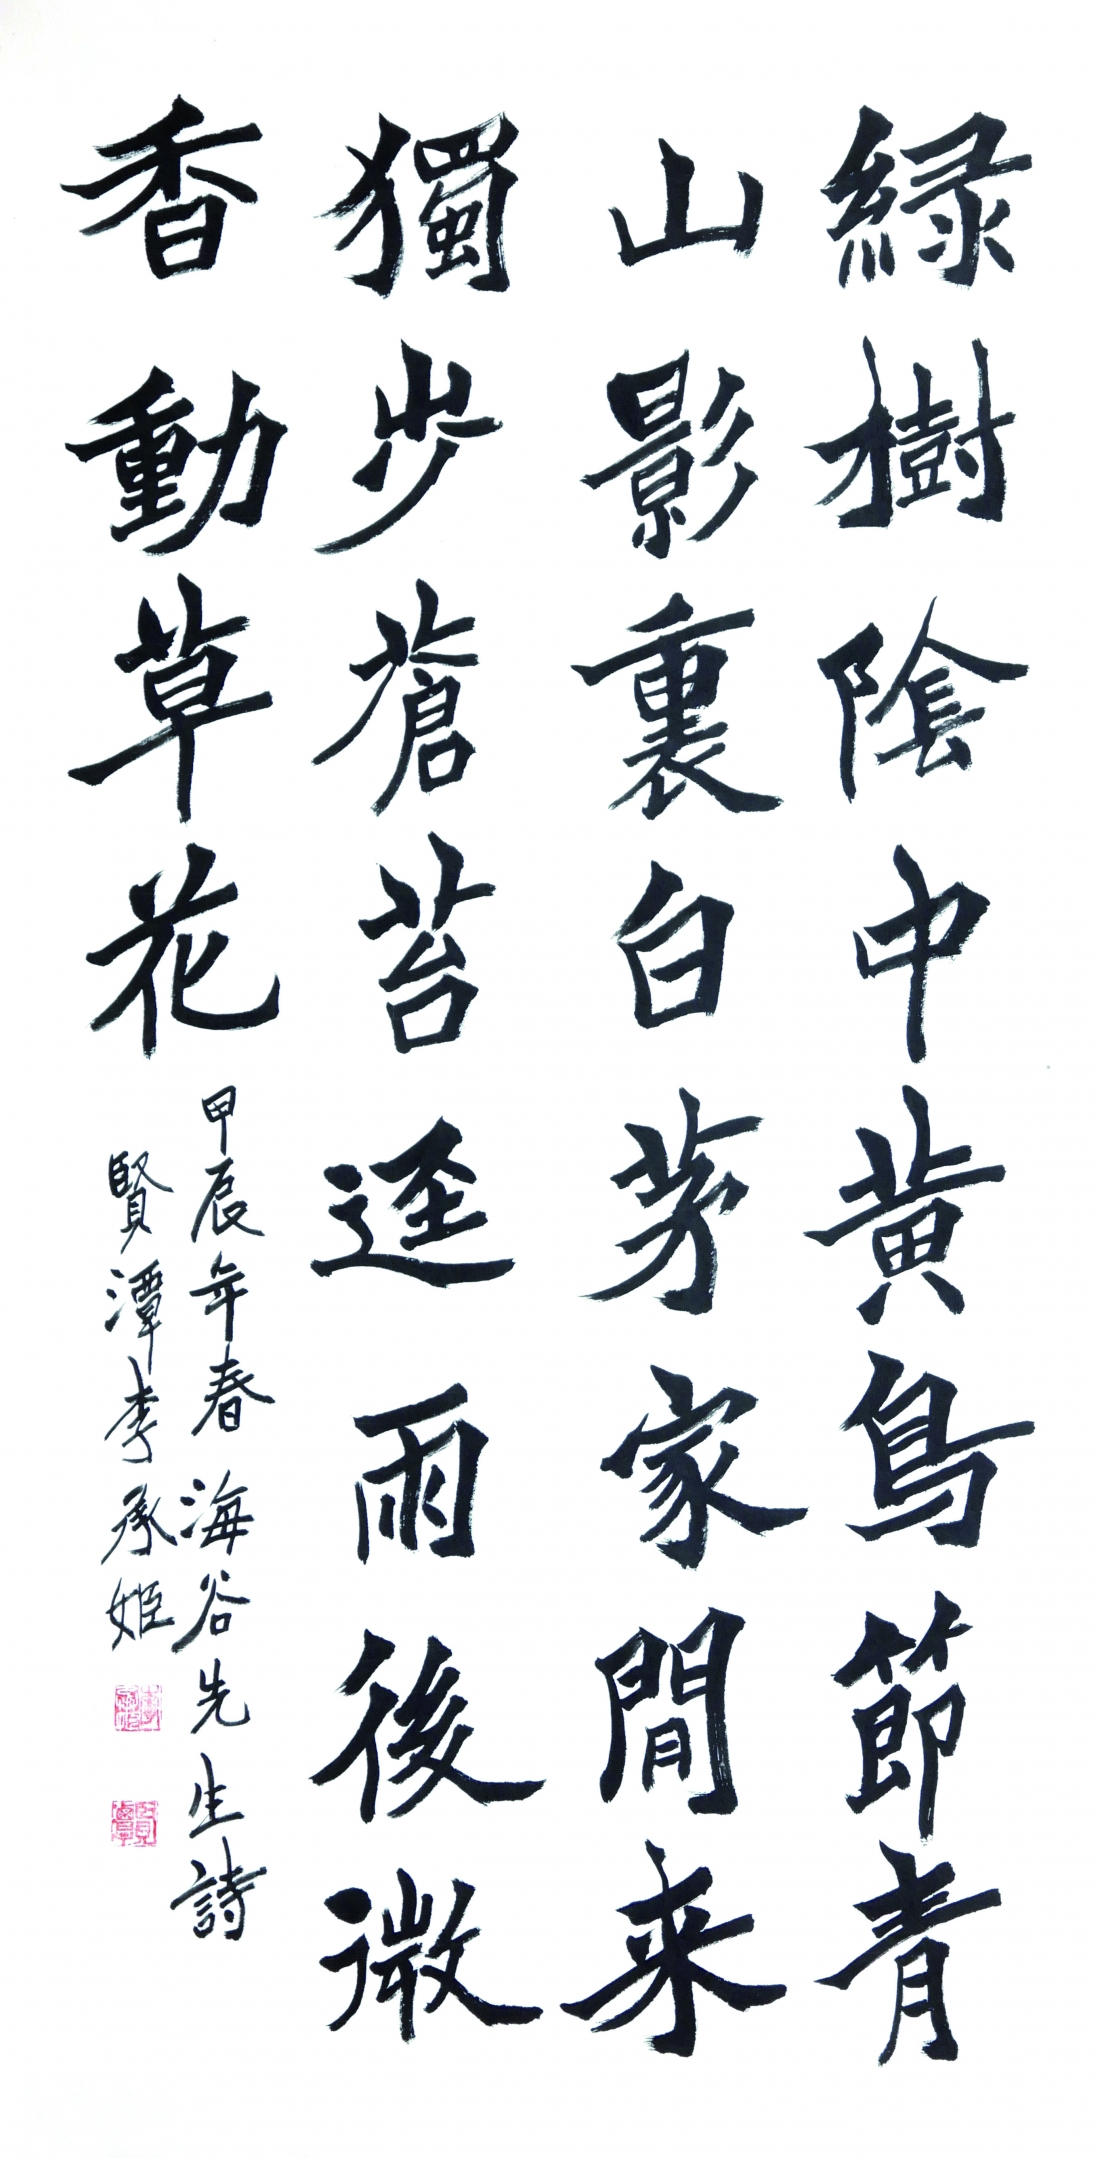 綠樹陰中黃鳥節青
山影裏白茅家閒来
獨步蒼苔逕雨後微
香動草花
甲辰年春 海谷先生詩
賢潭李承姬